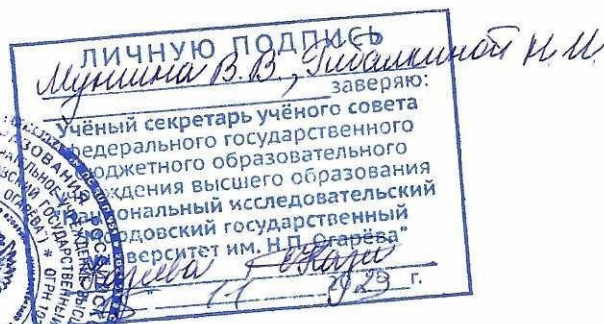 ЛИЧНУЮ ПОДПИСЬ
Мунина В. В., Гибалкиной Н. И.
заверяю:
Учёный секретарь учёного совета
федерального государственного
бюджетного образовательного
учреждения высшего образования
"Национальный исследовательский
Мордовский государственный
университет им. Н.П. Огарёва"
11 2023 г.